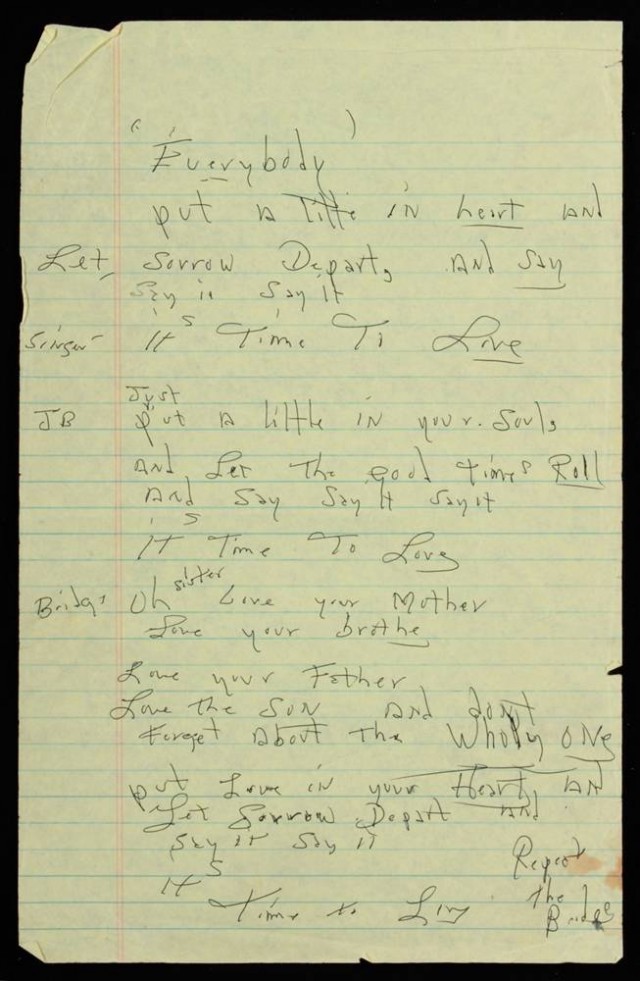 ( )
Everybody
put a little in heart and
Let, Sorrow Depart, And Say
Say it Say it
Singer it's Time To Live
Just
JB put a little in your. Souls
And Let The good times Roll
And Say Say it Say it
it's Time To Love
sister
Bridge Oh Love your Mother
Love your brothe
Love your Father
Love the Son and dont
Forget About The Wholy one
put Love in your Heart, and
Let Sorrow Depart And
Say it Say it
it's
Time to
Repeat
the
Bridge